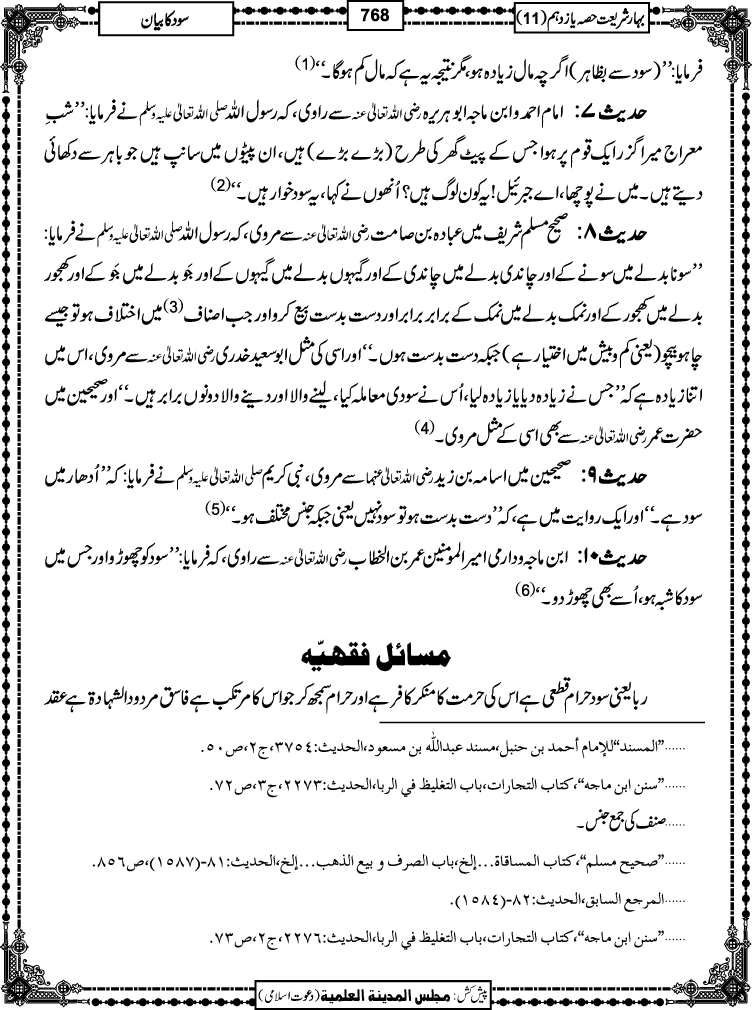 بہار شریعت حصہ یازدہم (11)
768
سود کا بیان
فرمایا: ’’(سود سے بظاہر) اگرچہ مال زیادہ ہو، مگر نتیجہ یہ ہے کہ مال کم ہوگا۔‘‘(1)
حدیث ۷: امام احمد و ابن ماجہ ابوہریرہ رضی اللہ تعالیٰ عنہ سے راوی، کہ رسول اللہ صلی اللہ تعالیٰ علیہ وسلم نے فرمایا: ’’شبِ
معراج میرا گزر ایک قوم پر ہوا جس کے پیٹ گھر کی طرح (بڑے بڑے) ہیں، ان پیٹوں میں سانپ ہیں جو باہر سے دکھائی
دیتے ہیں۔ میں نے پوچھا، اے جبرئیل! یہ کون لوگ ہیں؟ اُنھوں نے کہا، یہ سود خوار ہیں۔‘‘(2)
حدیث ۸: صحیح مسلم شریف میں عبادہ بن صامت رضی اللہ تعالیٰ عنہ سے مروی، کہ رسول اللہ صلی اللہ تعالیٰ علیہ وسلم نے فرمایا:
’’سونا بدلے میں سونے کے اور چاندی بدلے میں چاندی کے اور گیہوں بدلے میں گیہوں کے اور جَو بدلے میں جَو کے اور کھجور
بدلے میں کھجور کے اور نمک بدلے میں نمک کے برابر برابر اور دست بدست بیع کرو اور جب اصناف(3) میں اختلاف ہو تو جیسے
چاہو بیچو (یعنی کم و بیش میں اختیار ہے) جبکہ دست بدست ہوں۔‘‘ اور اسی کی مثل ابوسعید خدری رضی اللہ تعالیٰ عنہ سے مروی، اس میں
اتنا زیادہ ہے کہ ’’جس نے زیادہ دیا یا زیادہ لیا، اُس نے سودی معاملہ کیا، لینے والا اور دینے والا دونوں برابر ہیں۔‘‘ اور صحیحین میں
حضرت عمر رضی اللہ تعالیٰ عنہ سے بھی اسی کے مثل مروی۔(4)
حدیث ۹: صحیحین میں اسامہ بن زید رضی اللہ تعالیٰ عنہما سے مروی، نبی کریم صلی اللہ تعالیٰ علیہ وسلم نے فرمایا: کہ ’’اُدھار میں
سود ہے۔‘‘ اور ایک روایت میں ہے، کہ ’’دست بدست ہو تو سود نہیں یعنی جبکہ جنس مختلف ہو۔‘‘(5)
حدیث ۱۰: ابن ماجہ و دارمی امیر المومنین عمر بن الخطاب رضی اللہ تعالیٰ عنہ سے راوی، کہ فرمایا: ’’سود کو چھوڑو اور جس میں
سود کا شبہ ہو، اُسے بھی چھوڑ دو۔‘‘(6)
مسائل فقہیّہ
ربا یعنی سود حرام قطعی ہے اس کی حرمت کا منکر کافر ہے اور حرام سمجھ کر جو اس کا مرتکب ہے فاسق مردود الشہادۃ ہے عقد
......’’المسند‘‘للإمام أحمد بن حنبل،مسند عبداللّٰه بن مسعود،الحدیث:۳۷۵٤،ج۲،ص۵۰.
......’’سنن ابن ماجه‘‘،کتاب التجارات،باب التغلیظ في الربا،الحدیث:۲۲۷۳،ج۳،ص۷۲.
......صنف کی جمع جنس۔
......’’صحیح مسلم‘‘،کتاب المساقاة...إلخ،باب الصرف و بیع الذهب...إلخ،الحدیث:۸۱-(۱۵۸۷)،ص۸۵٦.
......المرجع السابق،الحدیث:۸۲-(۱۵۸٤).
......’’سنن ابن ماجه‘‘،کتاب التجارات،باب التغلیظ في الربا،الحدیث:۲۲۷٦،ج۲،ص۷۳.
پیش کش: مجلس المدینة العلمیة (دعوت اسلامی)